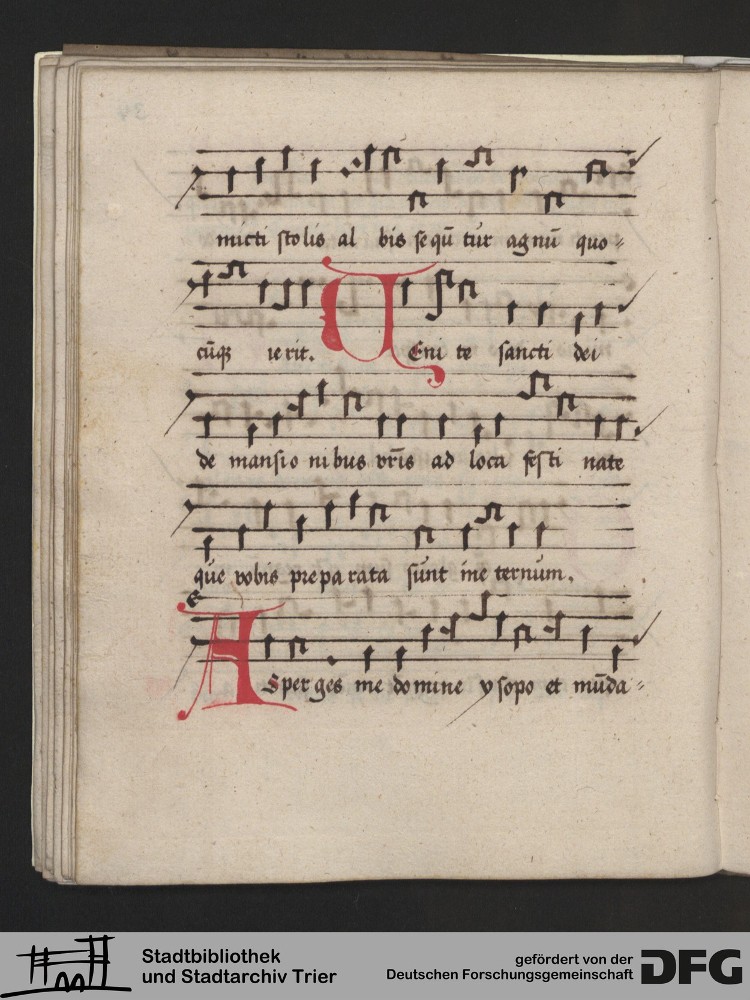 micti stolis al bis sequū tur agnū quo⸗
cūq; ierit. VEni te sancti dei
de mansio nibus vr̄is ad loca festi nate
que vobis prepa rata sunt in e ternum.
ASper ges me domine ysopo et mūda⸗
Stadtbibliothek
und Stadtarchiv Trier
gefördert von der
Deutschen Forschungsgemeinschaft
DFG